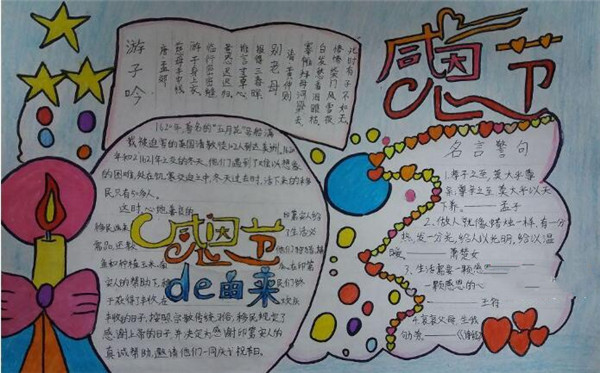 游子吟
唐 孟郊
慈母手中线
游子身上衣
临行密密缝
意恐迟迟归
谁言寸草心
报得三春晖
别老母
清 黄仲则
搴帷拜母河梁去
白发愁看泪眼枯
惨惨柴门风雪夜
此时有子不如无
感恩节
1620年,著名的"五月花"号船满
载被迫害的英国清教徒102人到达美洲,1620
年和1621年之交的冬天,他们遇到了难以想象
的困难,处在饥寒交迫之中,冬天过去时,活下来的移
民只有50多人。
这时,心地善良的
印第安人给
移民送来
生活必
需品,还教
他们狩猎,捕
鱼和种植玉米,南
在印第
安人的帮助下,移
民们终
于获得了丰收,在
欢庆
丰收的日子,按照宗教传统习俗,移民规定了
感谢上帝的日子,并决定为感谢印第安人的
真诚帮助,邀请他们一同庆祝节日。
感恩节
de由来
名言警句
1.孝子之至,莫大乎尊
亲;尊亲之至,莫大乎以天
下养。——孟子
2.做人就像蜡烛一样,有一分
热,发一分光,给人以光明,给以温
暖。——萧楚女
3.生活需要一颗感
一颗感恩的心
——王符
4.哀哀父母,生我
劬劳。——《诗经》